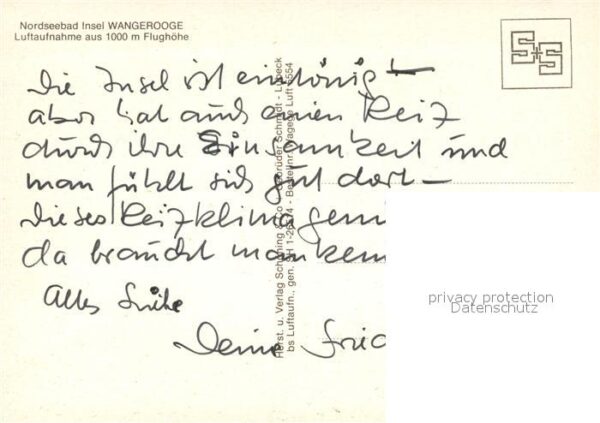 Nordseebad Insel WANGEROOGE
Luftaufnahme aus 1000 m Flughöhe
S+S
Die Insel ist eintönig –
aber hat auch einen Reiz
durch ihre Einsamkeit und
man fühlt sich gut dort –
dieses Reizklima
da braucht man
Alles Liebe
Deine
Herst. u. Verlag Schöning & Co + Gebrüder Schmidt - Lübeck
privacy protection
Datenschutz